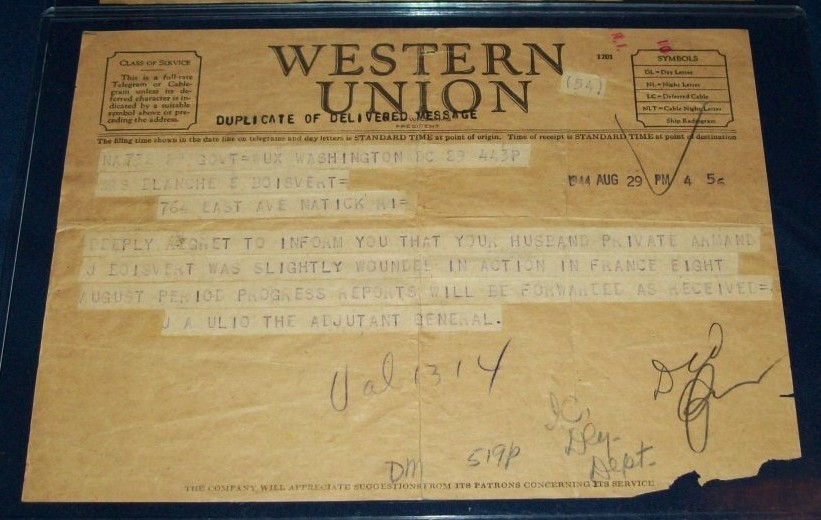 WESTERN
UNION
1201
(54)
CLASS OF SERVICE
This is a full-rate
Telegram or Cable-
gram unless its de-
ferred character is in-
dicated by a suitable
symbol above or pre-
ceding the address.
SYMBOLS
DL = Day Letter
NL = Night Letter
LC = Deferred Cable
NLT = Cable Night Letter
Ship Radiogram
DUPLICATE OF DELIVERED MESSAGE
PRESIDENT
The filing time shown in the date line on telegrams and day letters is STANDARD TIME at point of origin. Time of receipt is STANDARD TIME at point of destination
GOVT=WUX WASHINGTON DC 29 443P
MRS BLANCHE E BOISVERT=
1944 AUG 29 PM 4
764 EAST AVE NATICK RI=
DEEPLY REGRET TO INFORM YOU THAT YOUR HUSBAND PRIVATE ARMAND
J BOISVERT WAS SLIGHTLY WOUNDED IN ACTION IN FRANCE EIGHT
AUGUST PERIOD PROGRESS REPORTS WILL BE FORWARDED AS RECEIVED=
J A ULIO THE ADJUTANT GENERAL.
Val 1314
Dey.
Dept.
DM 519P
THE COMPANY WILL APPRECIATE SUGGESTIONS FROM ITS PATRONS CONCERNING ITS SERVICE